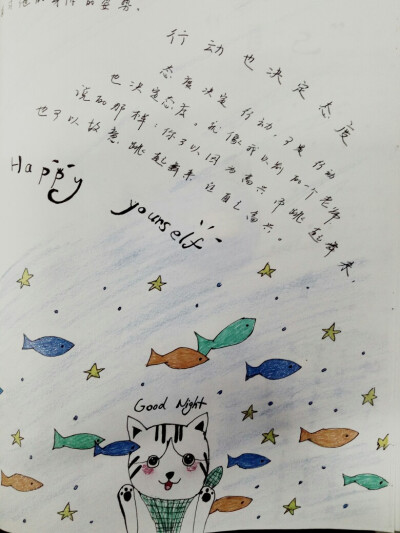 的姿势。
行动也决定态度
态度决定行动,可是行动
也决定态度。就像我以前的一个老师
说的那样:你可以因为高兴而跳起舞来,
也可以故意跳起舞来让自己高兴。
Happy yourself
Good Night